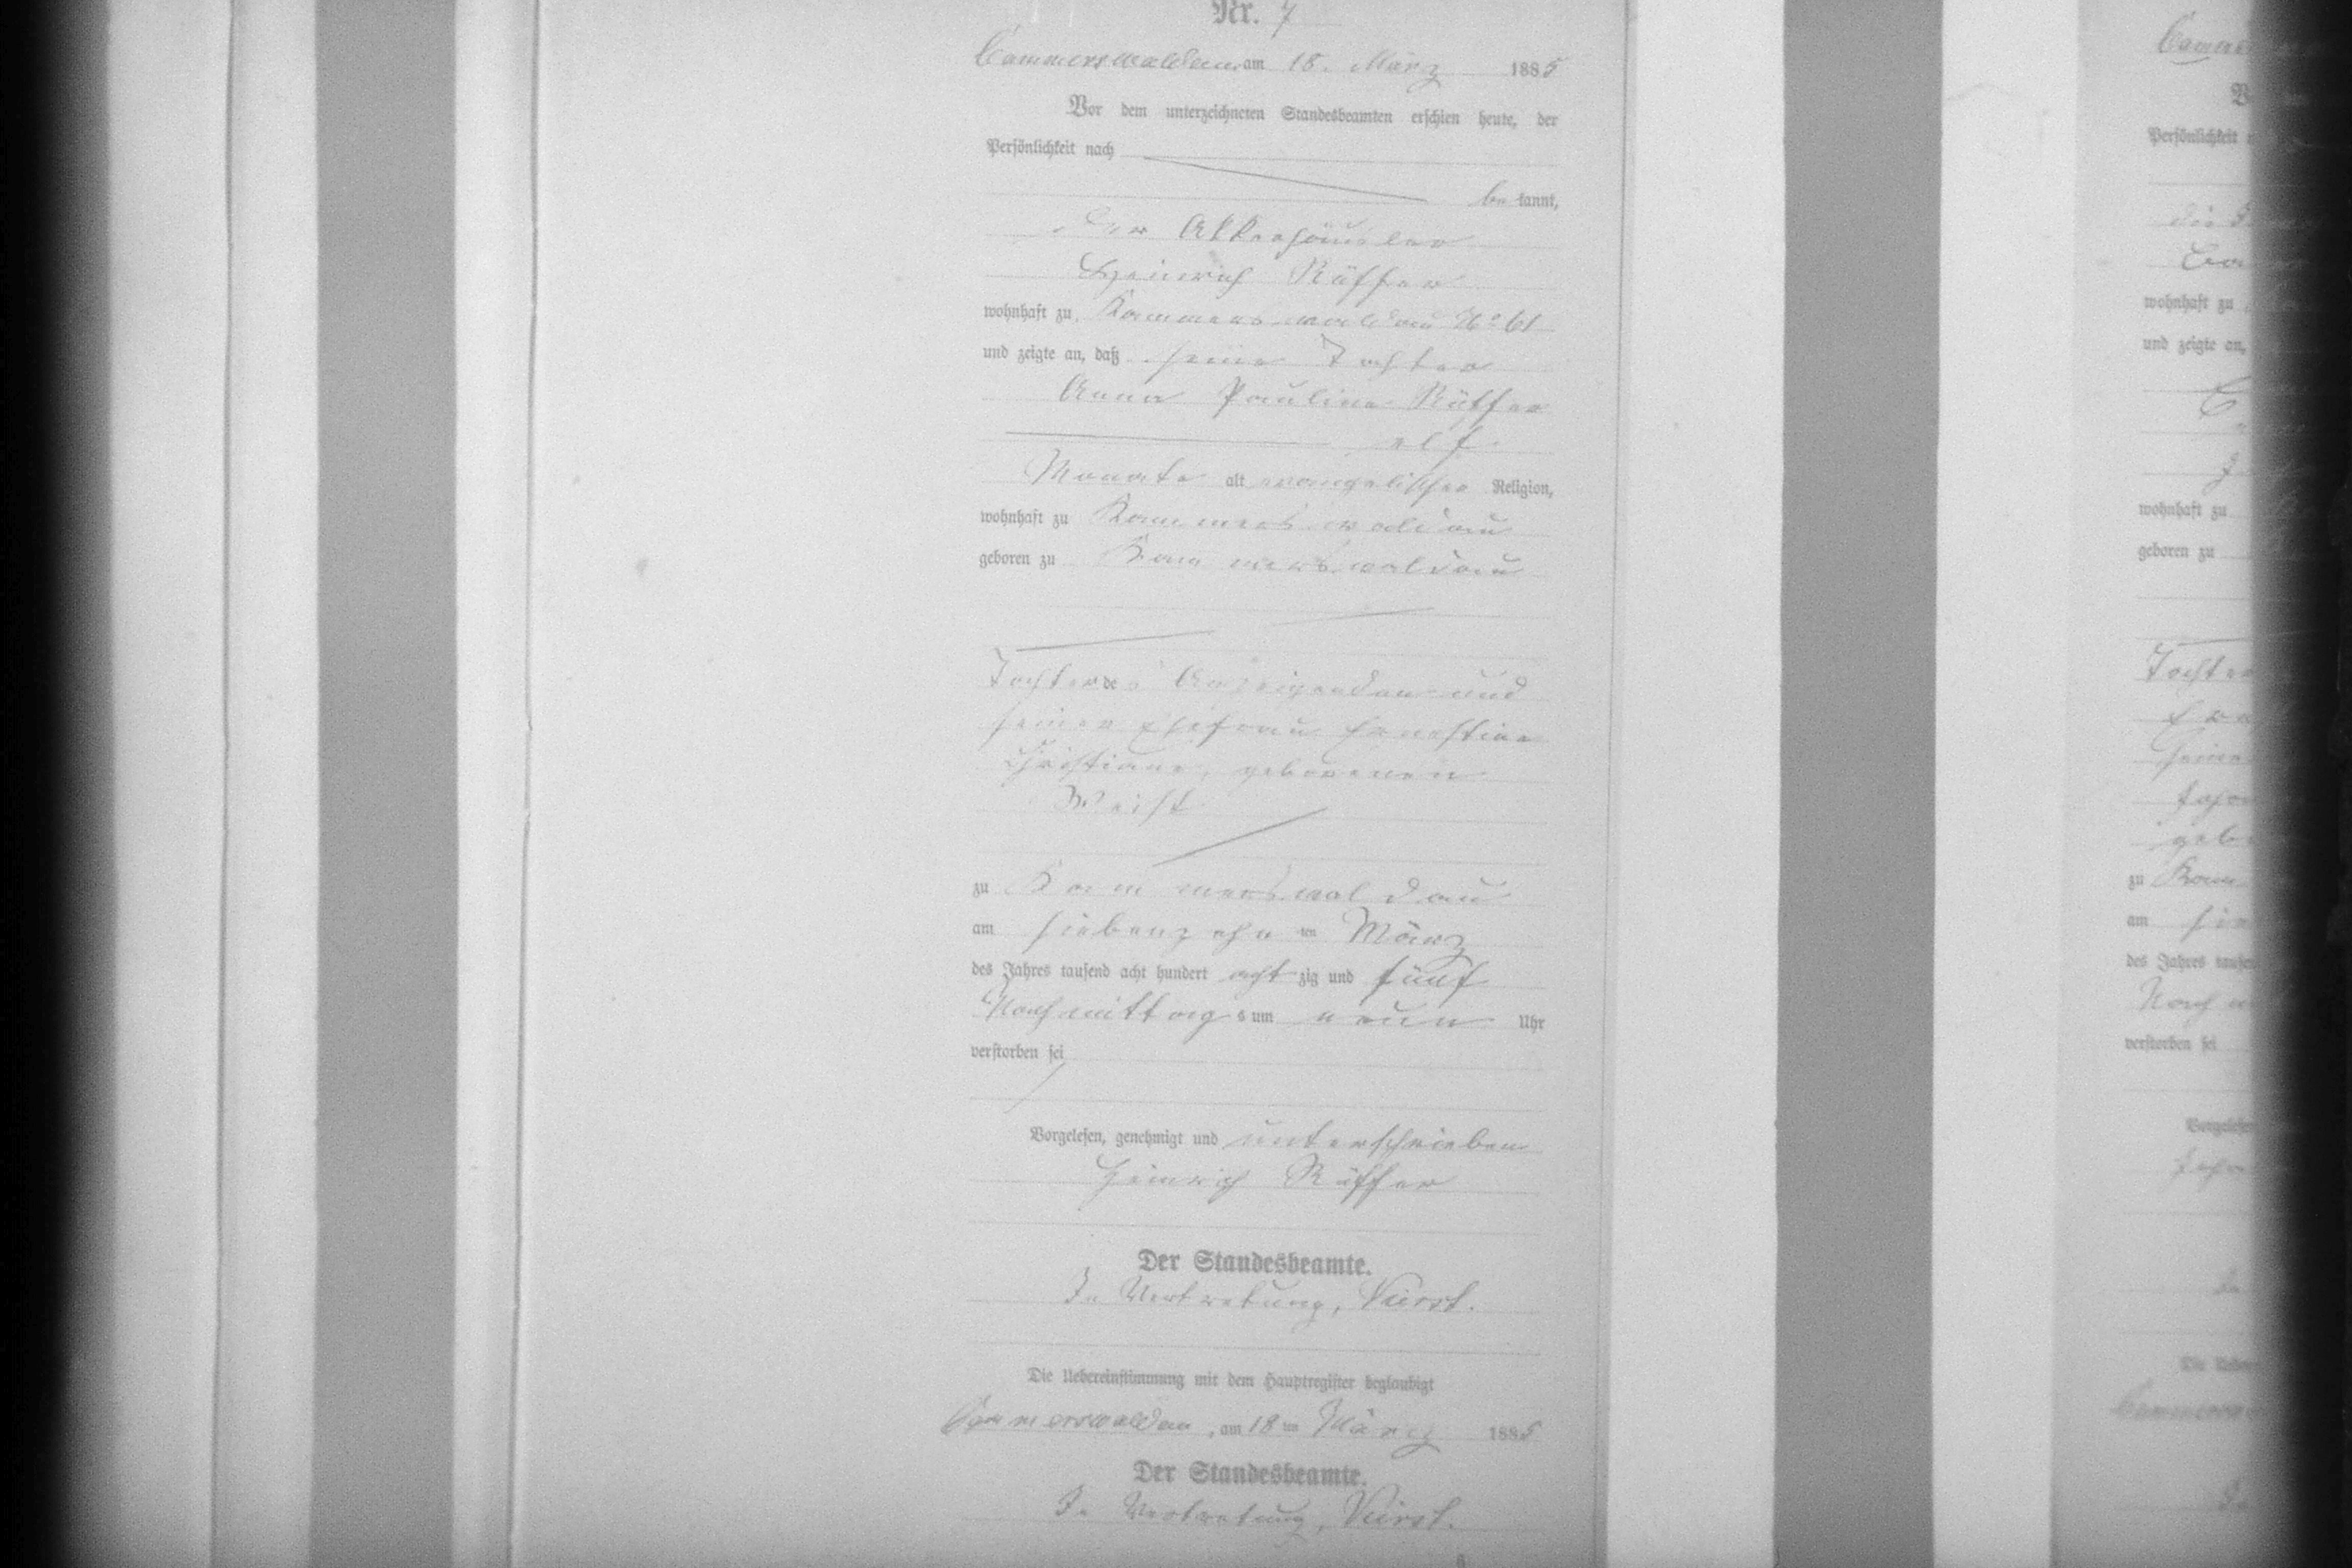 Nr. 7
Cammerswaldau, am 18. März 1885
Vor dem unterzeichneten Standesbeamten erschien heute, der
Persönlichkeit nach
be kannt,
der
Heinrich Rüffer
wohnhaft zu Kammerswaldau No 61
und zeigte an, daß seine Tochter
Anna Pauline Rüffer
elf
Monate alt evangelischer Religion,
wohnhaft zu Kammerswaldau
geboren zu Kammerswaldau
Tochter des Anzeigenden und
seiner Ehefrau Ernestine
Christiane, geborenen
Weist
zu Kammerswaldau
am siebenzehn ten März
des Jahres tausend acht hundert acht zig und fünf
Nachmittags um neun Uhr
verstorben sei
Vorgelesen, genehmigt und unterschrieben
Heinrich Rüffer
Der Standesbeamte.
In Vertretung,
Die Uebereinstimmung mit dem Hauptregister beglaubigt
Cammerswaldau, am 18 ten März 1885
Der Standesbeamte.
In Vertretung,
Persönlichkeit
wohnhaft zu
und zeigte an,
wohnhaft zu
geboren zu
Tochter
zu
am
des Jahres
verstorben sei